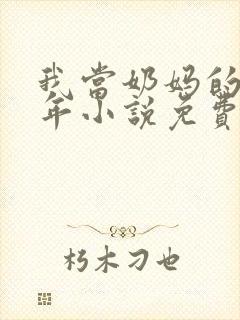 我当奶妈的
年小说免费
朽木刁也